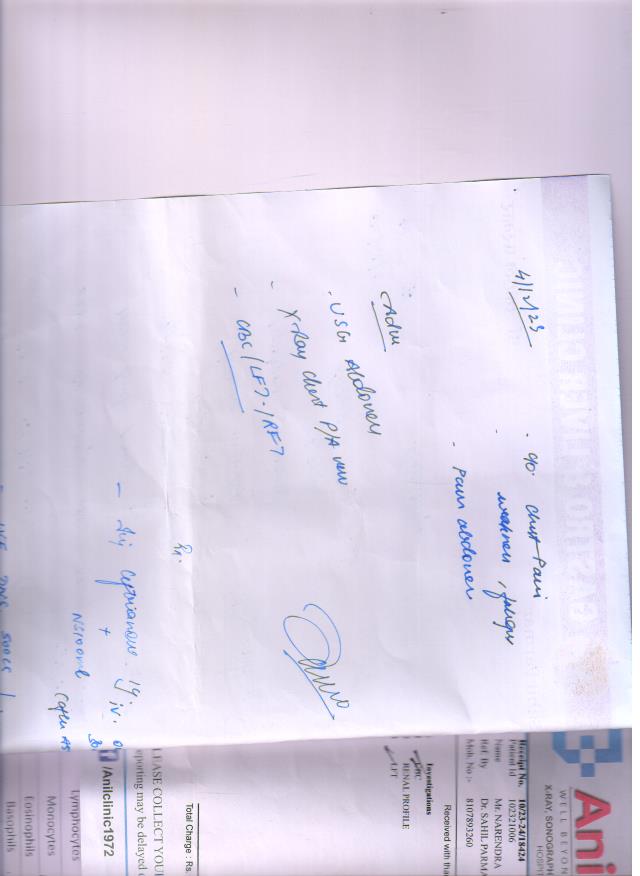 4/12/23
. c/o. Chest Pain
. weakness, fatigue
. Pain abdomen
Adv
. USG Abdomen
- X-Ray Chest P/A view
- CBC/LFT/RFT
Rx.
- Inj Ceftriaxone 1g. iv.
+
NS 100ml
(after AS
- IVF DNS 500cc /
GASTRO & LIVER CLINIC
Ani
WELL BEYON
X-RAY, SONOGRAPH
HOSPIT
Receipt No. 10/23-24/18424
Patient Id 102321006
Name Mr. NARENDRA
Ref. By Dr. SAHIL PARMA
Mob. No :- 8107893260
Received with than
Investigations
RENAL PROFILE
LFT
Total Charge : Rs.
LEASE COLLECT YOU
eporting may be delayed
/Anilclinic1972
Lymphocytes
Monocytes
Eosinophils
Basophils